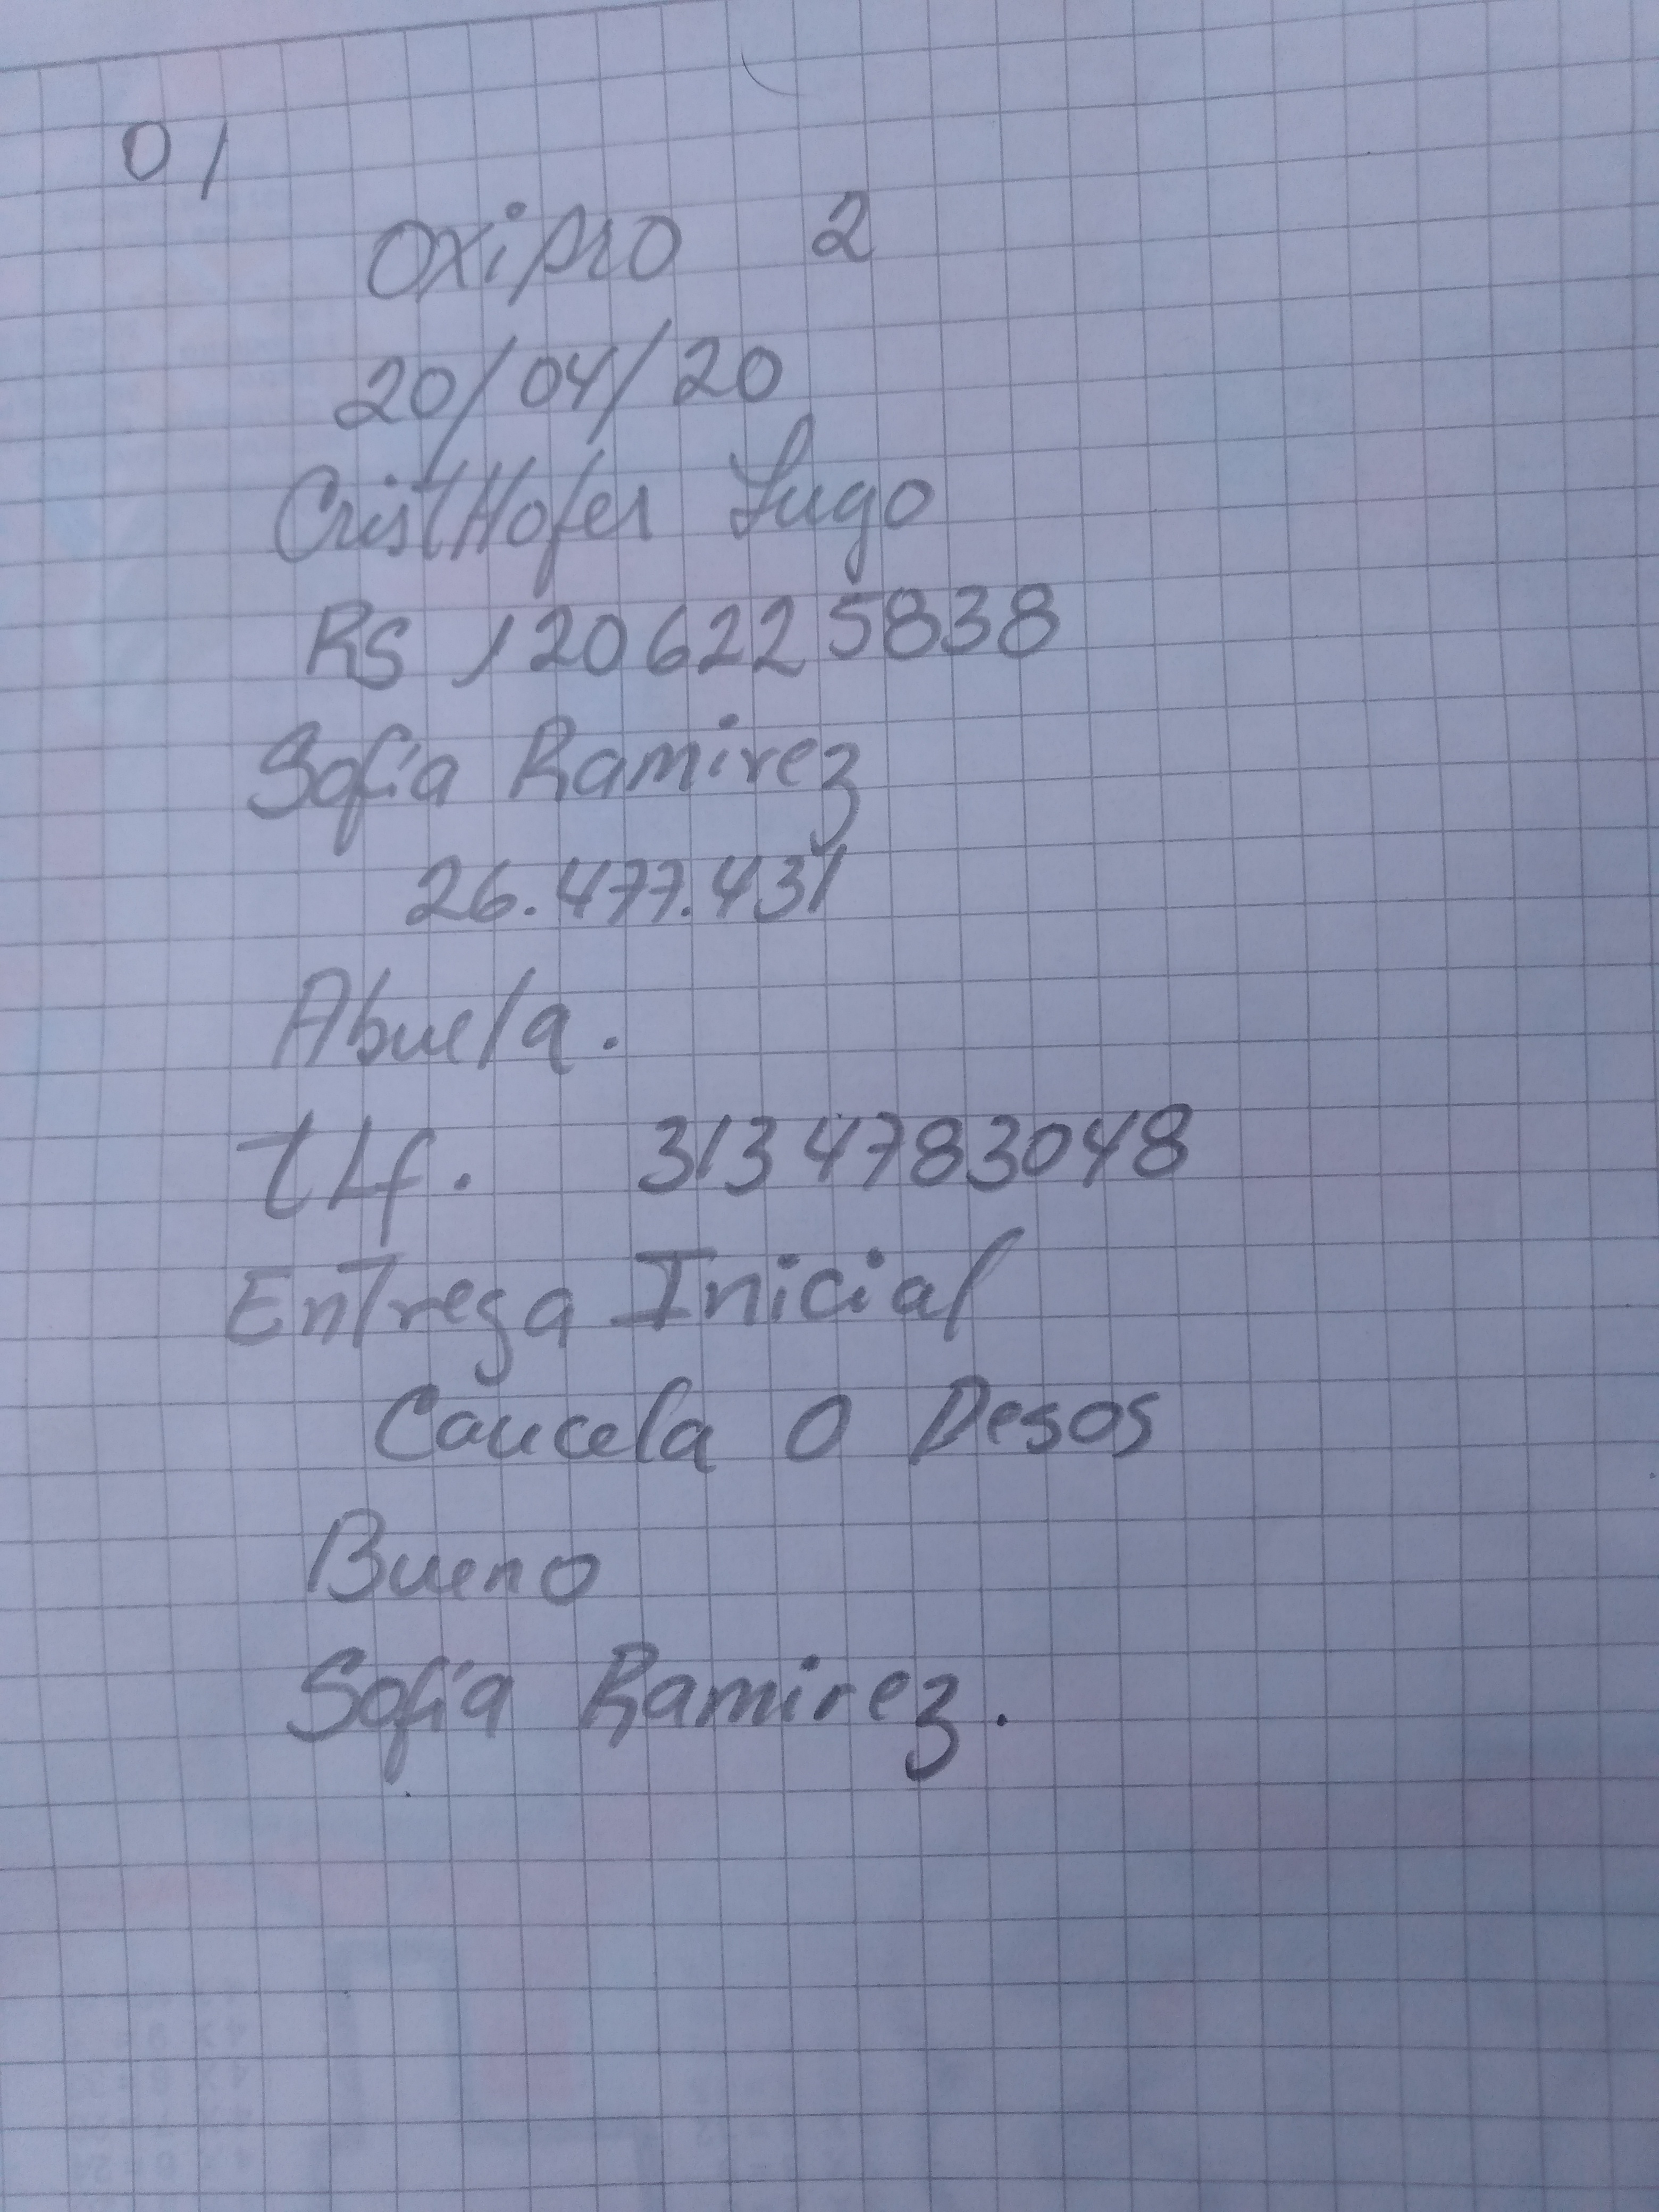 01
Oxipro 2
20/04/20
CristHofer Lugo
RS 1206225838
Sofia Ramirez
26.477.431
Abuela.
tLf. 3134783048
Entrega Inicial
Cancela 0 Pesos
Bueno
Sofia Ramirez.